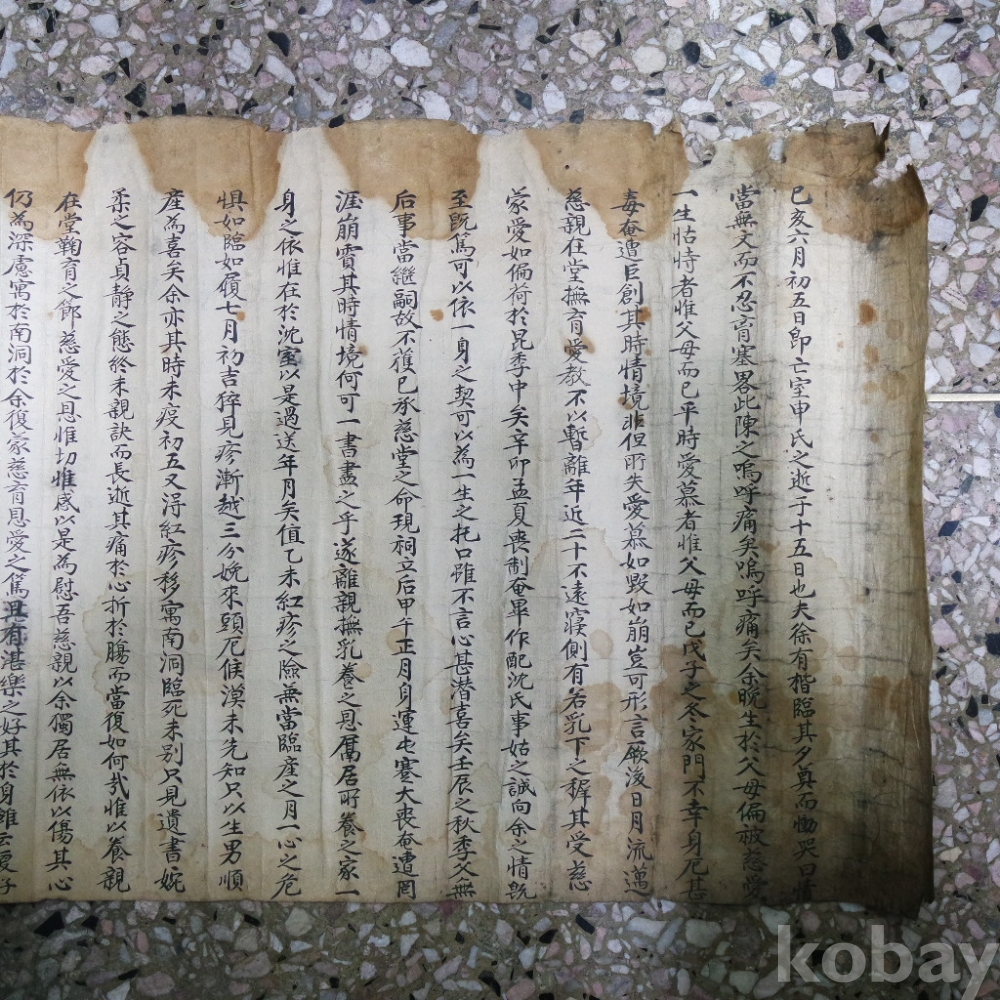 己亥六月初五日卽亡室申氏之逝于十五日也夫徐有楷臨其夕奠而慟哭曰情
當無文而不忍育塞畧此陳之嗚呼痛矣嗚呼痛矣余晩生於父母偏被慈愛
一生怙恃者惟父母而已平時愛慕者惟父母而已戊子之冬家門不幸身厄甚
毒奄遭巨創其時情境非但所失愛慕如毀如崩豈可形言厥後日月流邁
慈親在堂撫育愛敎不以暫離年近二十不遠寢側有若乳下之穉其受慈
蒙愛如偏荷於昆季中矣辛卯孟夏喪制奄畢作配沈氏事姑之誠向余之情旣
至旣篤可以依一身之契可以為一生之托口雖不言心甚潜喜矣壬辰之秋季父無
后事當繼嗣故不獲已承慈堂之命現祠立后甲午正月身運屯蹇大喪奄遭罔
涯崩霣其時情境何可一書盡之乎遂離親撫乳養之恩屬居所養之家一
身之依惟在於沈室以是過送年月矣值乙未紅疹之險無當臨產之月一心之危
惧如臨如履七月初吉猝見疹漸越三分娩來頭厄候漠未先知只以生男順
産為喜矣余亦其時未疫初五又得紅疹移寓南洞臨死未別只見遺書婉
柔之容貞静之態終未親訣而長逝其痛於心折於膓而當復如何㢤惟以養親
在堂鞠育之節慈愛之恩惟切惟感以是為慰吾慈親以余獨居無依以傷其心
仍為深慮寓於南洞於余復蒙慈育恩愛之篤且有湛樂之好其於身雖云
kobay